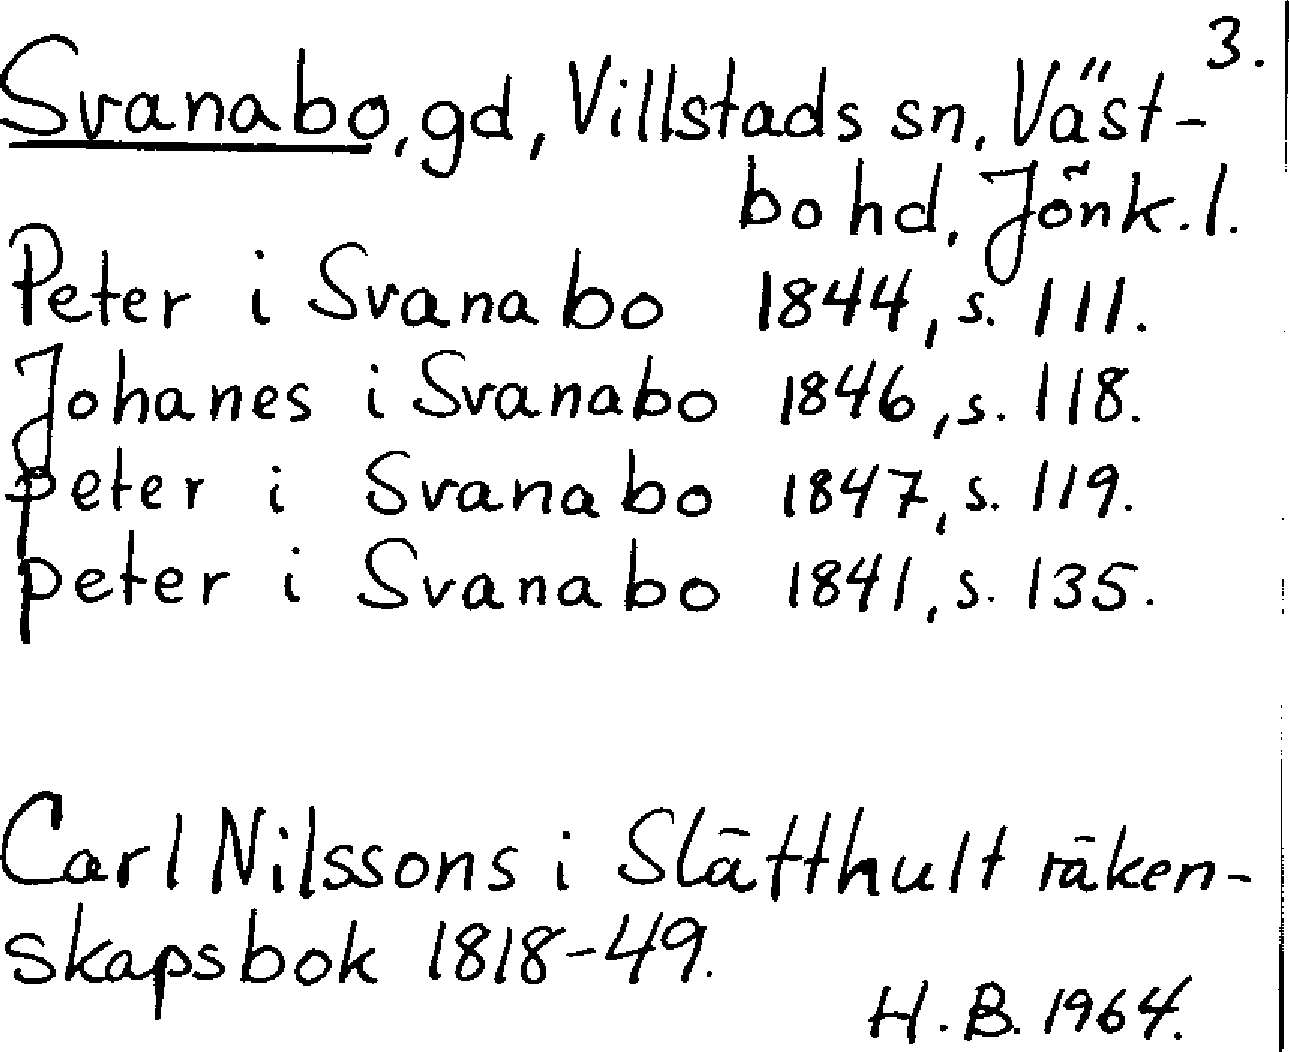 3.
Svanabo, gd, Villstads sn, Väst-
bo hd, Jönk.l.
Peter i Svanabo 1844, s. 111.
Johanes i Svanabo 1846, s. 118.
peter i Svanabo 1847, s. 119.
peter i Svanabo 1841, s. 135.
Carl Nilssons i Slätthult räken-
skapsbok 1818-49.
H.B. 1964.